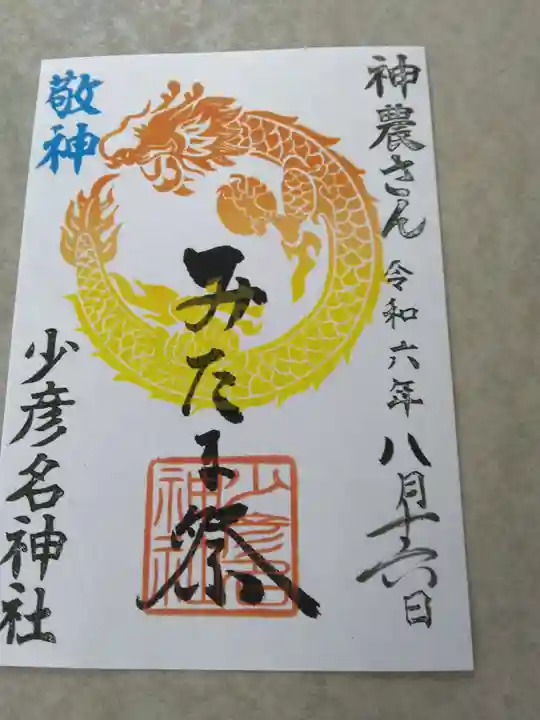 神農さん 令和六年 八月十六日
敬神
みたま祭
少彦名神社
少彦名
神社